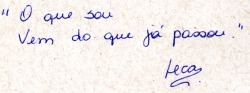 " O que sou
Vem do que já passou."